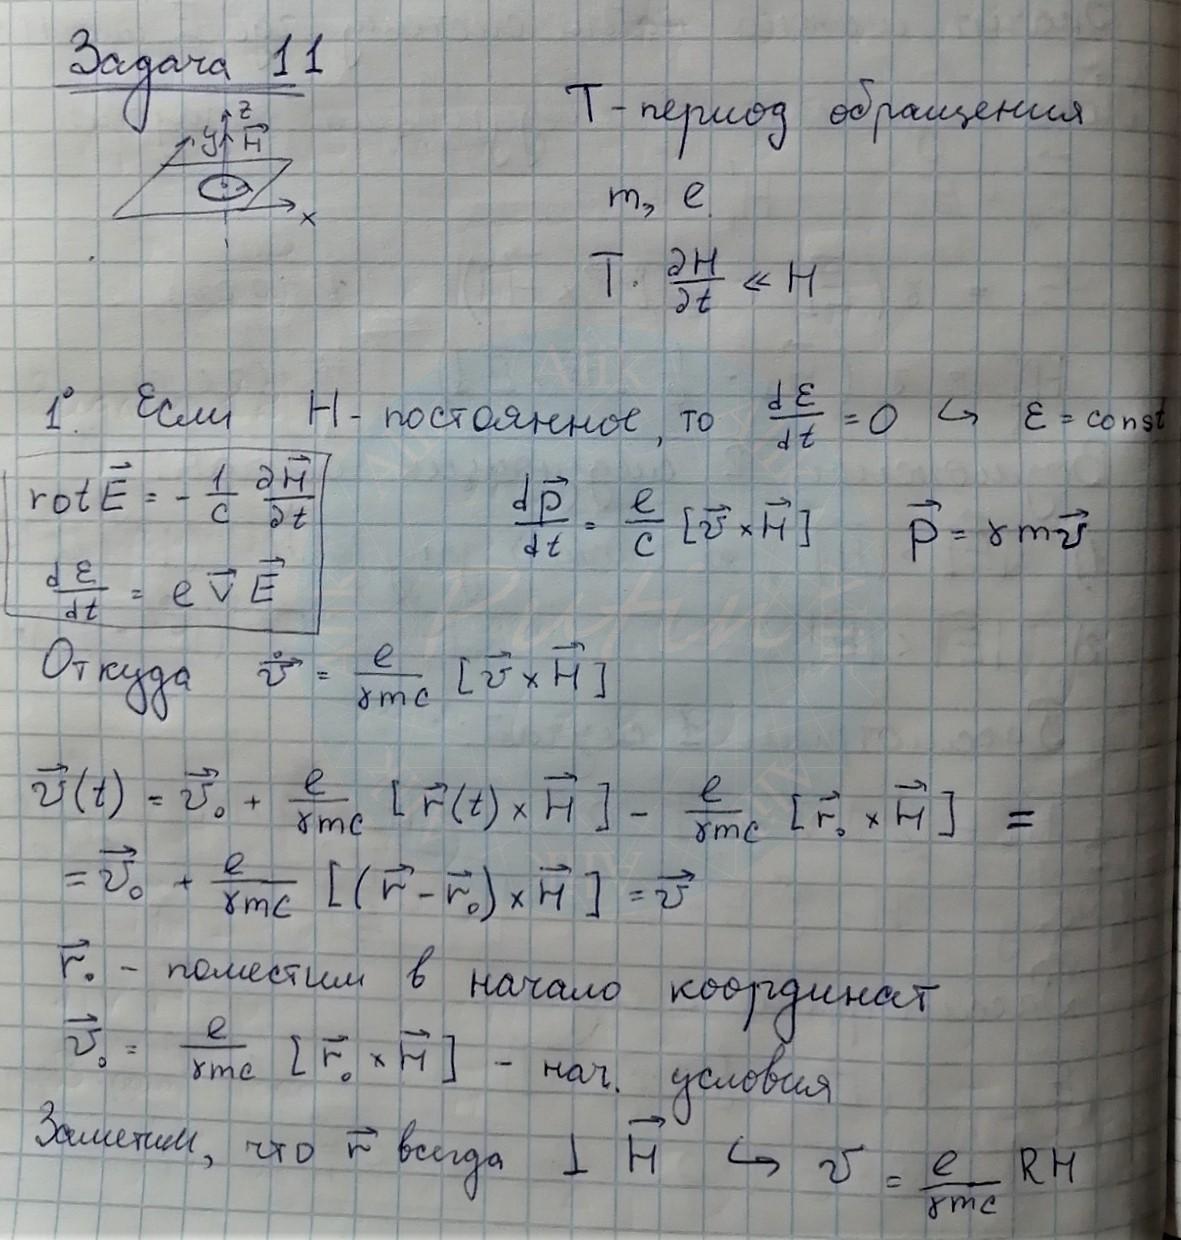 Задача 11
z
y H⃗
x
T - период обращения
m, e
T · ∂H/∂t ≪ H
1°. Если H - постоянное, то dℰ/dt = 0 ↪ ℰ = const
rot E⃗ = - 1/c ∂H⃗/∂t
dℰ/dt = e v⃗ E⃗
dp⃗/dt = e/c [v⃗ × H⃗] p⃗ = γmv⃗
Откуда v̇⃗ = e/γmc [v⃗ × H⃗]
v⃗(t) = v⃗₀ + e/γmc [r⃗(t) × H⃗] - e/γmc [r⃗₀ × H⃗] =
= v⃗₀ + e/γmc [(r⃗ - r⃗₀) × H⃗] = v⃗
r⃗₀ - поместим в начало координат
v⃗₀ = e/γmc [r⃗₀ × H⃗] - нач. условия
Заметим, что r⃗ всегда ⊥ H⃗ ↪ v = e/γmc RH